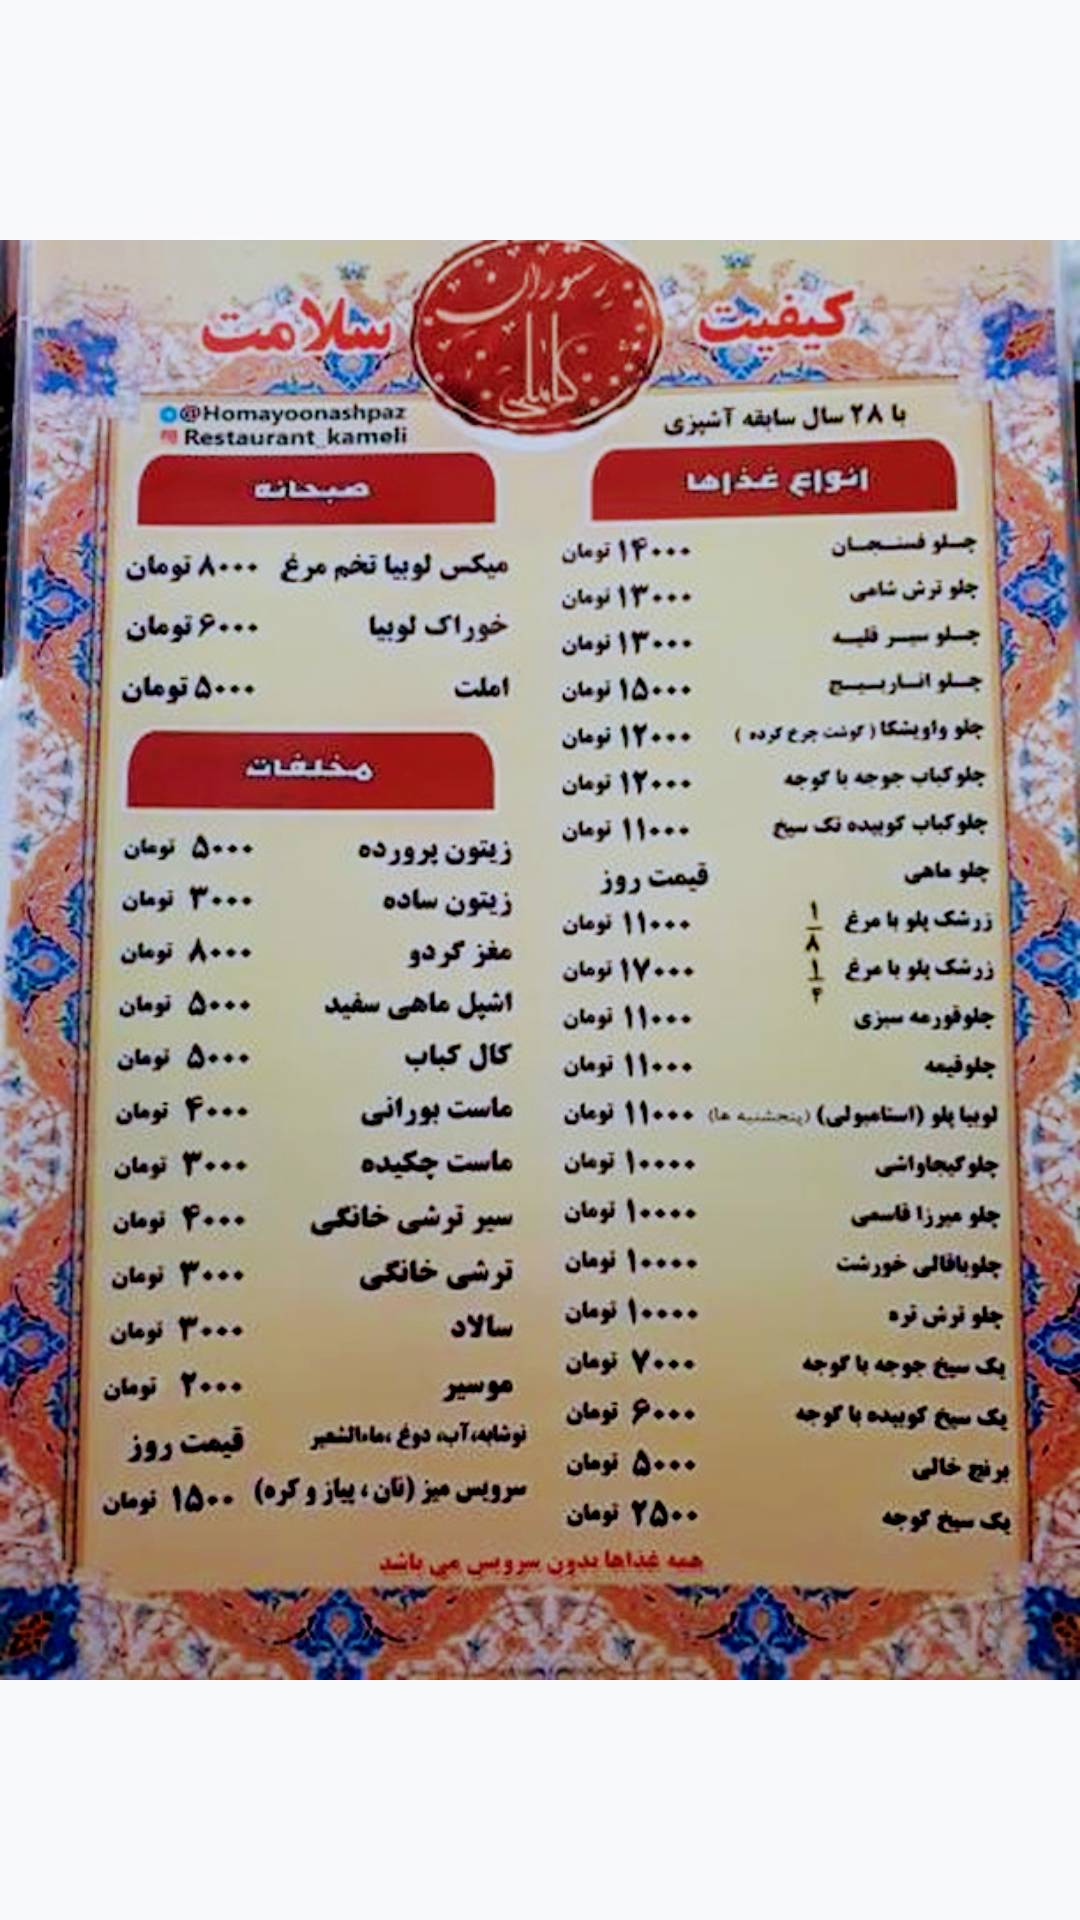 کیفیت
رستوران
کاملی
سلامت
با ۲۸ سال سابقه آشپزی
@Homayoonashpaz
Restaurant_kameli
انواع غذاها
چلو فسنجان ۱۴۰۰۰ تومان
چلو ترش شامی ۱۳۰۰۰ تومان
چلو سیر قلیه ۱۳۰۰۰ تومان
چلو اناربیج ۱۵۰۰۰ تومان
چلو واویشکا ( گوشت چرخ کرده ) ۱۲۰۰۰ تومان
چلوکباب جوجه با گوجه ۱۲۰۰۰ تومان
چلوکباب کوبیده تک سیخ ۱۱۰۰۰ تومان
چلو ماهی قیمت روز
زرشک پلو با مرغ ۱/۸ ۱۱۰۰۰ تومان
زرشک پلو با مرغ ۱/۴ ۱۷۰۰۰ تومان
چلوقورمه سبزی ۱۱۰۰۰ تومان
چلوقیمه ۱۱۰۰۰ تومان
لوبیا پلو (استامبولی) (پنجشنبه ها) ۱۱۰۰۰ تومان
چلوکیجاواشی ۱۰۰۰۰ تومان
چلو میرزا قاسمی ۱۰۰۰۰ تومان
چلوباقالی خورشت ۱۰۰۰۰ تومان
چلو ترش تره ۱۰۰۰۰ تومان
یک سیخ جوجه با گوجه ۷۰۰۰ تومان
یک سیخ کوبیده با گوجه ۶۰۰۰ تومان
برنج خالی ۵۰۰۰ تومان
یک سیخ گوجه ۲۵۰۰ تومان
صبحانه
میکس لوبیا تخم مرغ ۸۰۰۰ تومان
خوراک لوبیا ۶۰۰۰ تومان
املت ۵۰۰۰ تومان
مخلفات
زیتون پرورده ۵۰۰۰ تومان
زیتون ساده ۳۰۰۰ تومان
مغز گردو ۸۰۰۰ تومان
اشپل ماهی سفید ۵۰۰۰ تومان
کال کباب ۵۰۰۰ تومان
ماست بورانی ۴۰۰۰ تومان
ماست چکیده ۳۰۰۰ تومان
سیر ترشی خانگی ۴۰۰۰ تومان
ترشی خانگی ۳۰۰۰ تومان
سالاد ۳۰۰۰ تومان
موسیر ۲۰۰۰ تومان
نوشابه،آب، دوغ ،ماءالشعیر قیمت روز
سرویس میز (نان ، پیاز و کره) ۱۵۰۰ تومان
همه غذاها بدون سرویس می باشد